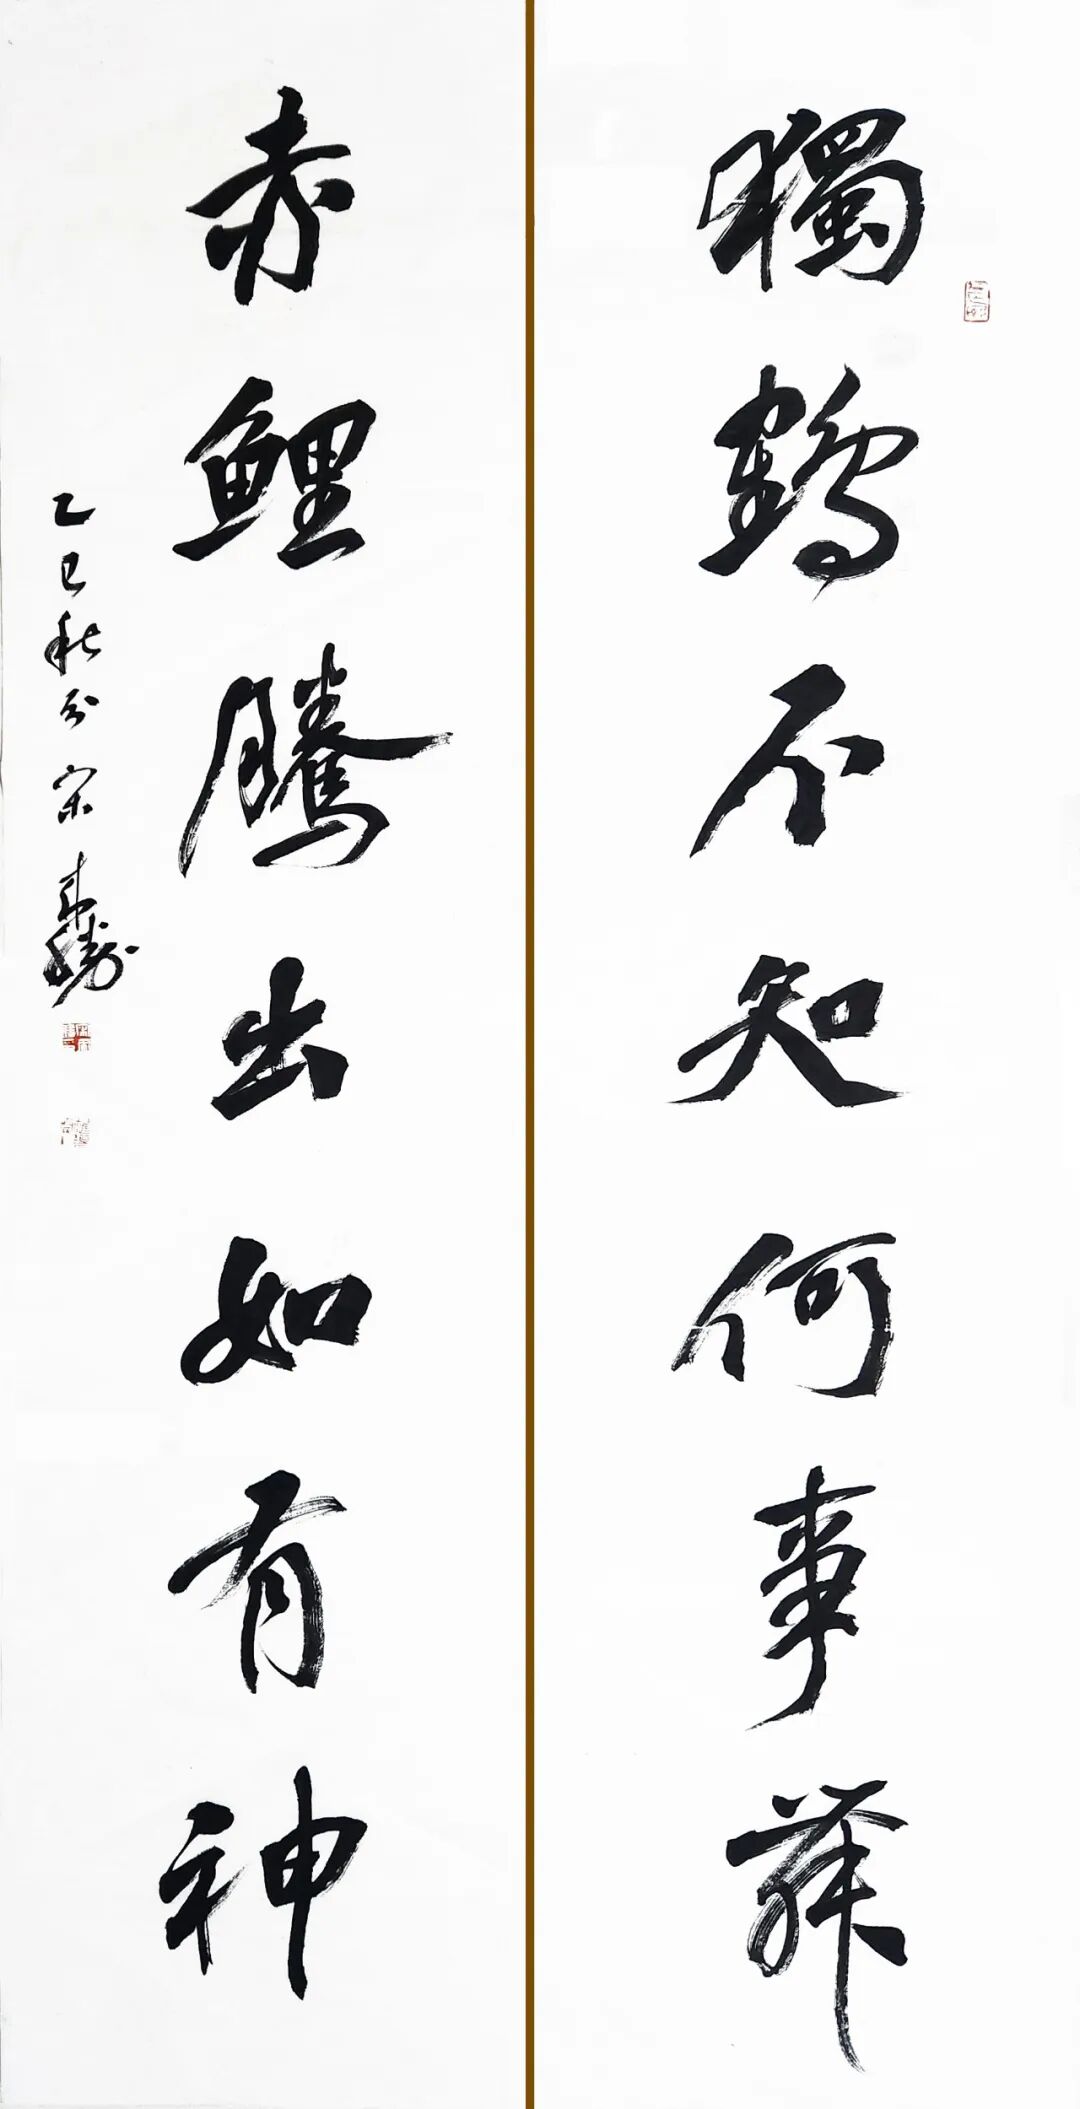 獨鶴不知何事舞
赤鯉騰出如有神
乙巳秋分宋來勝